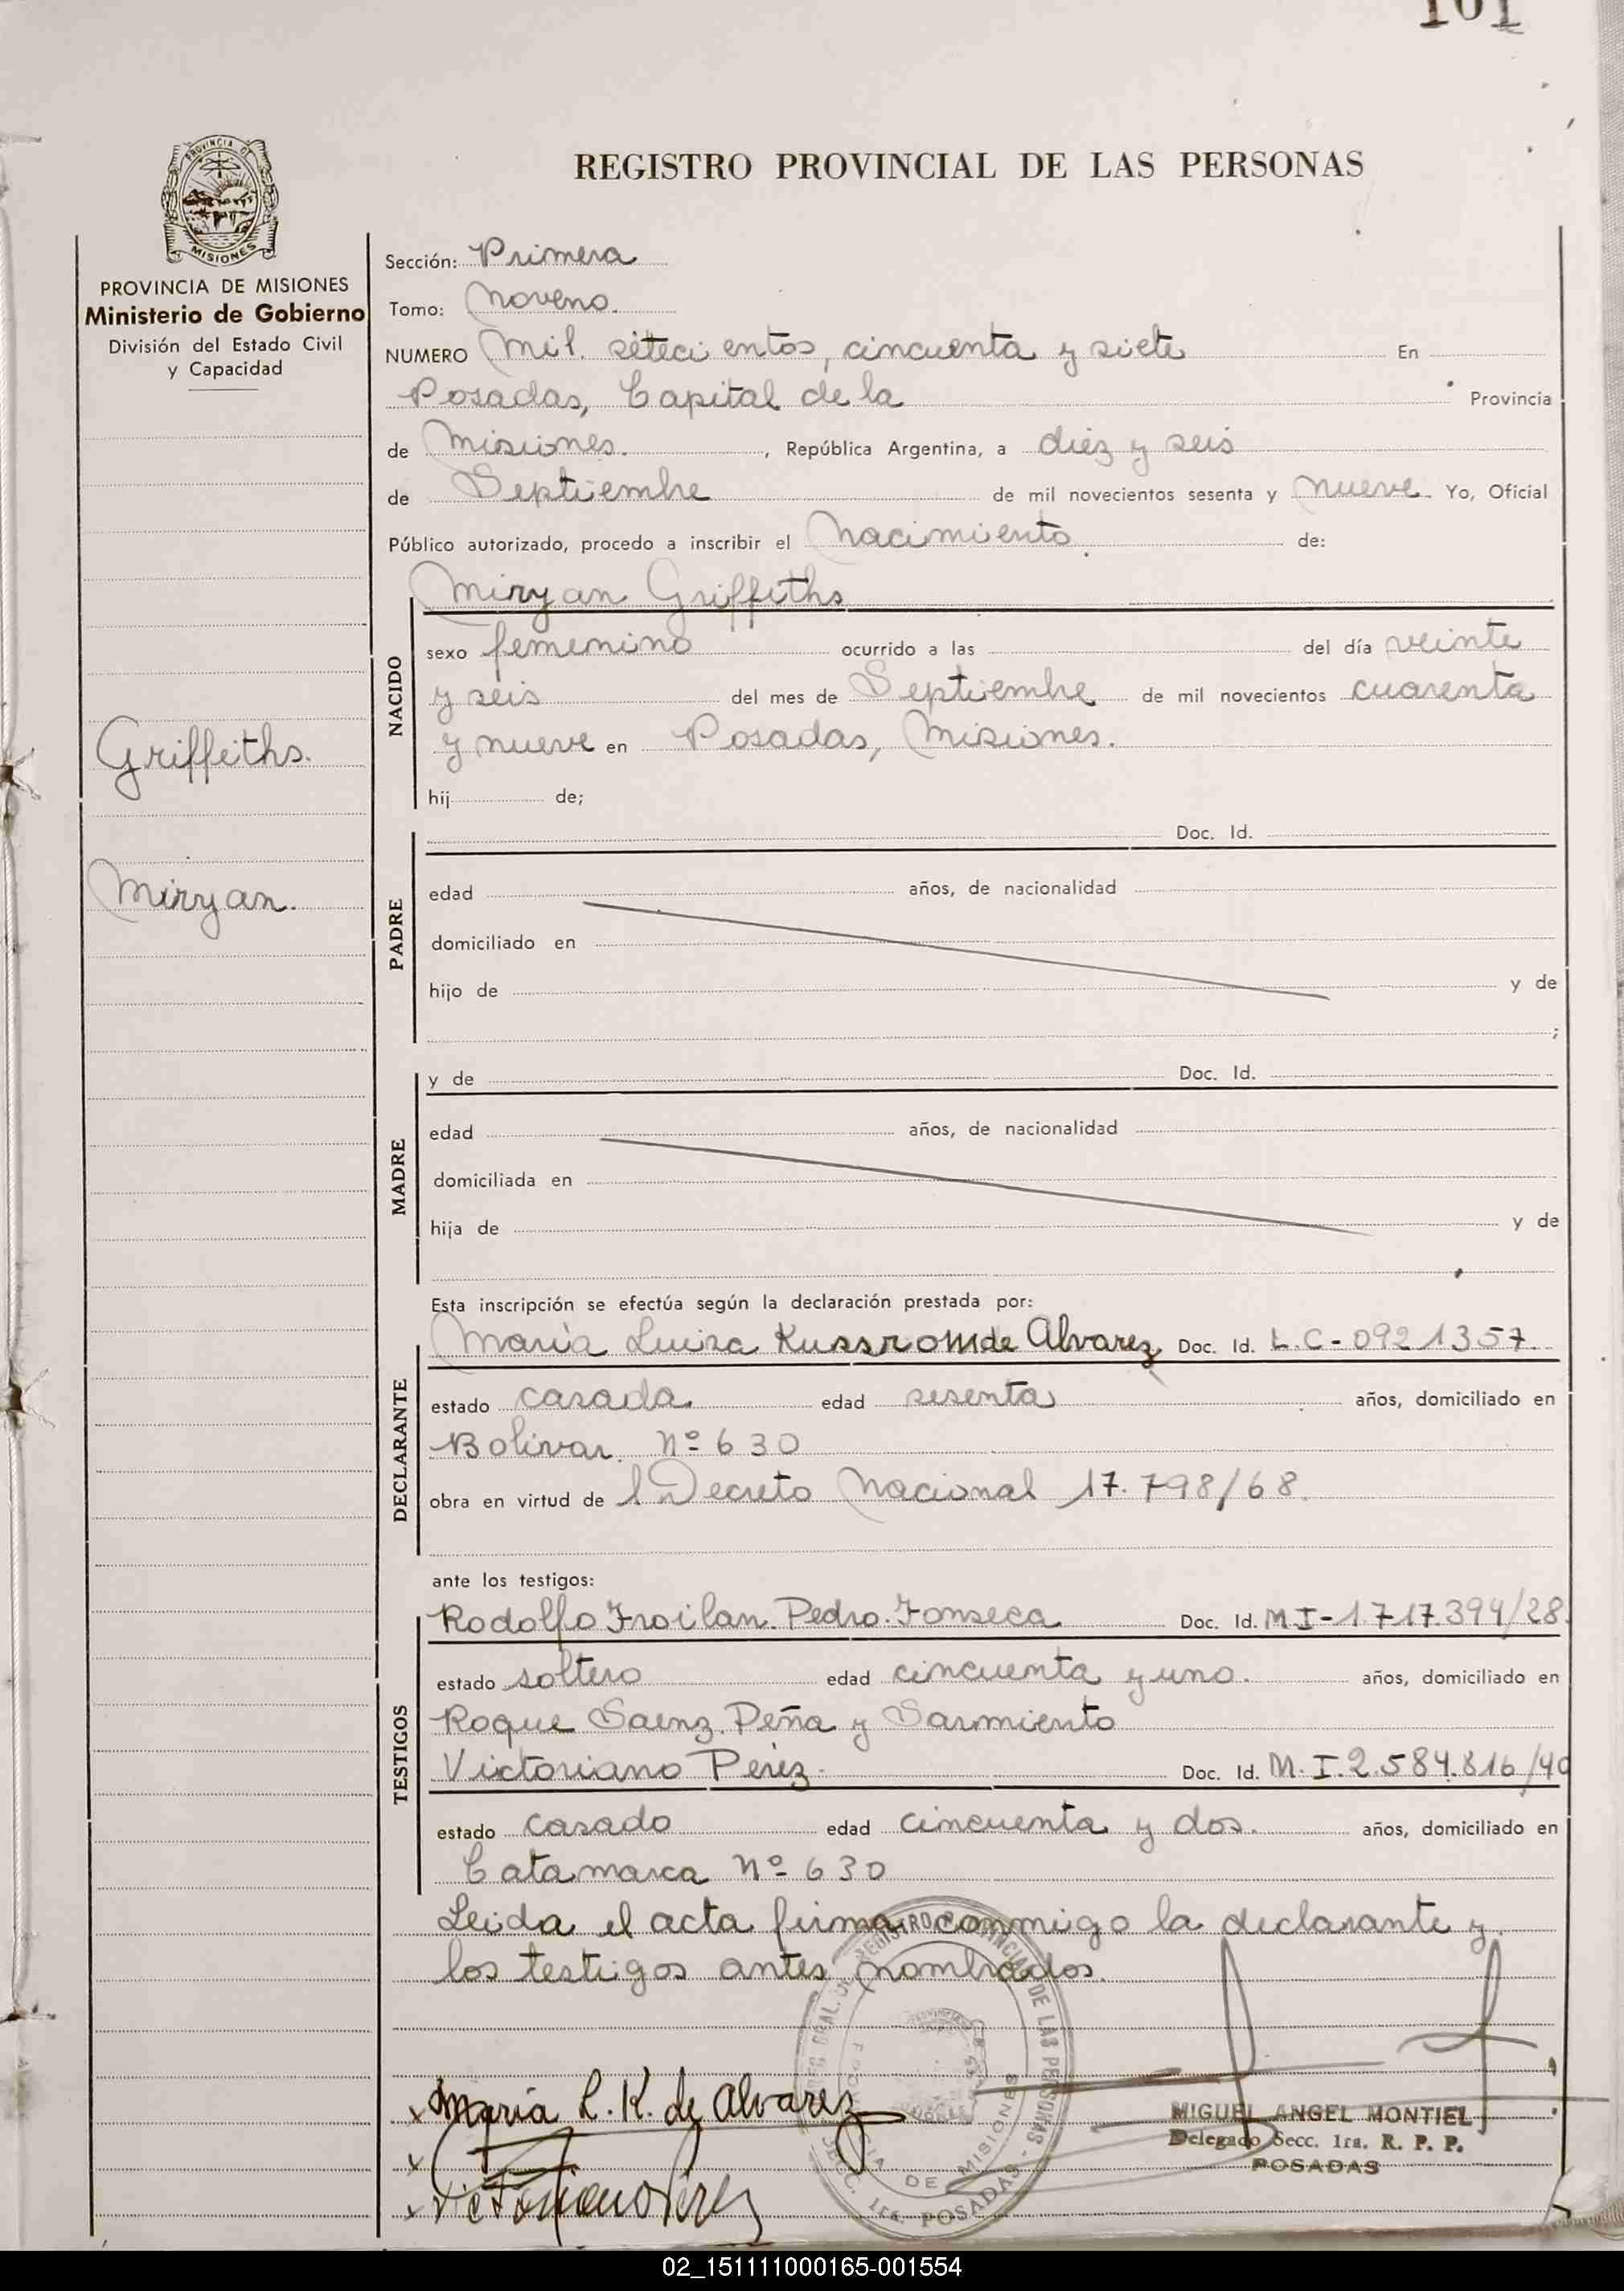 101
REGISTRO PROVINCIAL DE LAS PERSONAS
PROVINCIA DE MISIONES
Ministerio de Gobierno
División del Estado Civil
y Capacidad
Griffeiths.
Miryan.
Sección: Primera
Tomo: Noveno.
NUMERO Mil. seteci entos, cincuenta y siete En
Posadas, Capital de la Provincia
de Misiones. , República Argentina, a diez y seis
de Septiembre de mil novecientos sesenta y nueve. Yo, Oficial
Público autorizado, procedo a inscribir el Nacimiento. de:
Miryan Griffeiths
NACIDO
sexo femenino ocurrido a las del día veinte
y seis del mes de Septiembre de mil novecientos cuarenta
y nueve en Posadas, Misiones.
hij de;
PADRE
Doc. Id.
edad años, de nacionalidad
domiciliado en
hijo de y de
;
MADRE
y de Doc. Id.
edad años, de nacionalidad
domiciliada en
hija de y de
Esta inscripción se efectúa según la declaración prestada por:
DECLARANTE
María Luisa Kussrom de Alvarez Doc. Id. L.C-0921357.
estado casada. edad sesenta años, domiciliado en
Bolivar. Nº 630
obra en virtud de l Decreto Nacional 17.798/68.
ante los testigos:
TESTIGOS
Rodolfo Froilan Pedro Fonseca Doc. Id. M.I-1.717.394/28.
estado soltero edad cincuenta y uno. años, domiciliado en
Roque Saenz Peña y Sarmiento
Victoriano Perez. Doc. Id. M.I.2.584.816/40
estado casado edad cincuenta y dos. años, domiciliado en
Catamarca Nº 630
Leida el acta firma conmigo la declarante y
los testigos antes nombrados.
María L. K. de Alvarez
Victoriano Perez
MIGUEL ANGEL MONTIEL
Delegado Secc. 1ra. R. P. P.
POSADAS
02_151111000165-001554